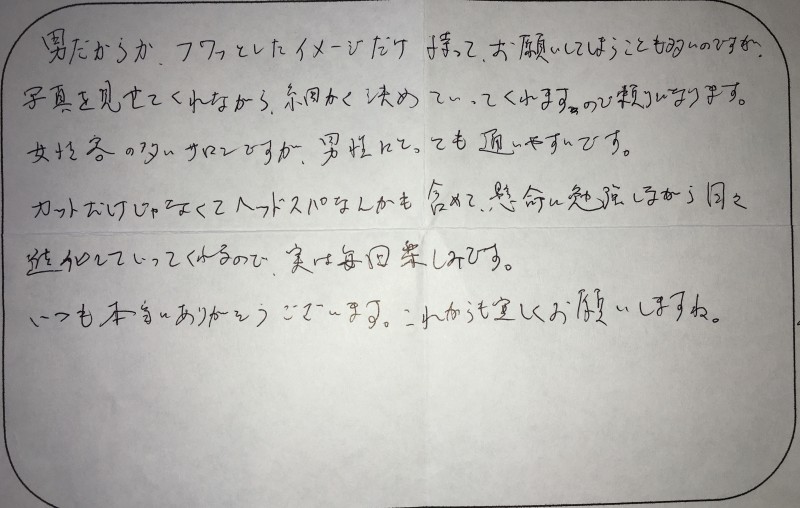 男だからか、フワっとしたイメージだけ持って、お願いしてしまうことも多いのですが、
写真を見せてくれながら、細かく決めていってくれますので頼りになります。
女性客の多いサロンですが、男性にとっても通いやすいです。
カットだけじゃなくてヘッドスパなんかも含めて、懸命に勉強しながら日々
進化していってくれるので、実は毎回楽しみです。
いつも本当にありがとうございます。これからも宜しくお願いしますね。